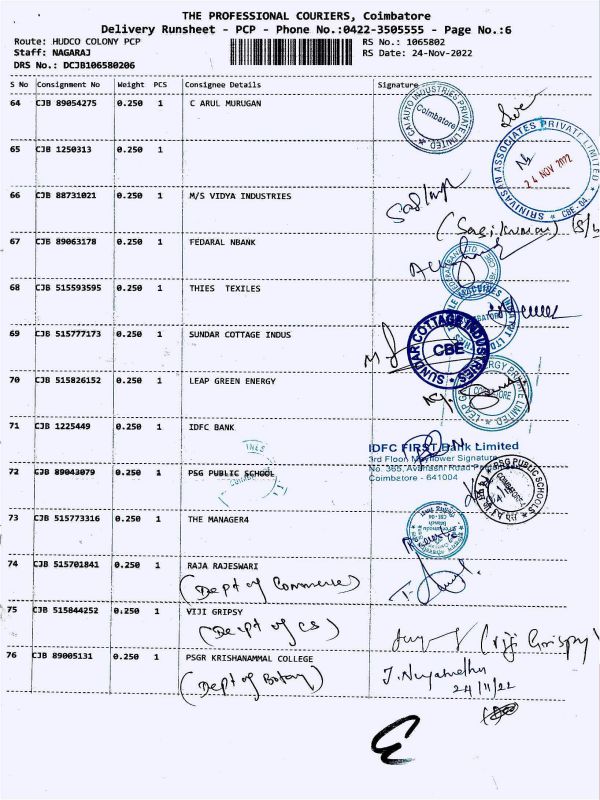 THE PROFESSIONAL COURIERS, Coimbatore
Delivery Runsheet - PCP - Phone No.:0422-3505555 - Page No.:6
Route: HUDCO COLONY PCP
RS No.: 1065802
Staff: NAGARAJ
RS Date: 24-Nov-2022
DRS No.: DCJB106580206
S No Consignment No Weight PCS Consignee Details Signature
64 CJB 89054275 0.250 1 C ARUL MURUGAN
CAI AUTO INDUSTRIES PRIVATE LIMITED
Coimbatore
65 CJB 1250313 0.250 1
SRINIVASAN ASSOCIATES PRIVATE LIMITED
24 NOV 2022
CBE-04
66 CJB 88731021 0.250 1 M/S VIDYA INDUSTRIES
67 CJB 89063178 0.250 1 FEDARAL NBANK
68 CJB 515593595 0.250 1 THIES TEXILES
69 CJB 515777173 0.250 1 SUNDAR COTTAGE INDUS
SUNDAR COTTAGE INDUSTRIES
CBE
70 CJB 515826152 0.250 1 LEAP GREEN ENERGY
71 CJB 1225449 0.250 1 IDFC BANK
IDFC FIRST Bank Limited
3rd Floor, Mayflower Signature,
No. 365, Avanashi Road
Coimbatore - 641004
72 CJB 89043079 0.250 1 PSG PUBLIC SCHOOL
PSG PUBLIC SCHOOLS
73 CJB 515773316 0.250 1 THE MANAGER4
74 CJB 515701841 0.250 1 RAJA RAJESWARI
(Dept of Commerce)
75 CJB 515844252 0.250 1 VIJI GRIPSY
(Dept of CS)
(Viji Gripsy)
76 CJB 89005131 0.250 1 PSGR KRISHANAMMAL COLLEGE
(Dept of Botany)
24/11/22